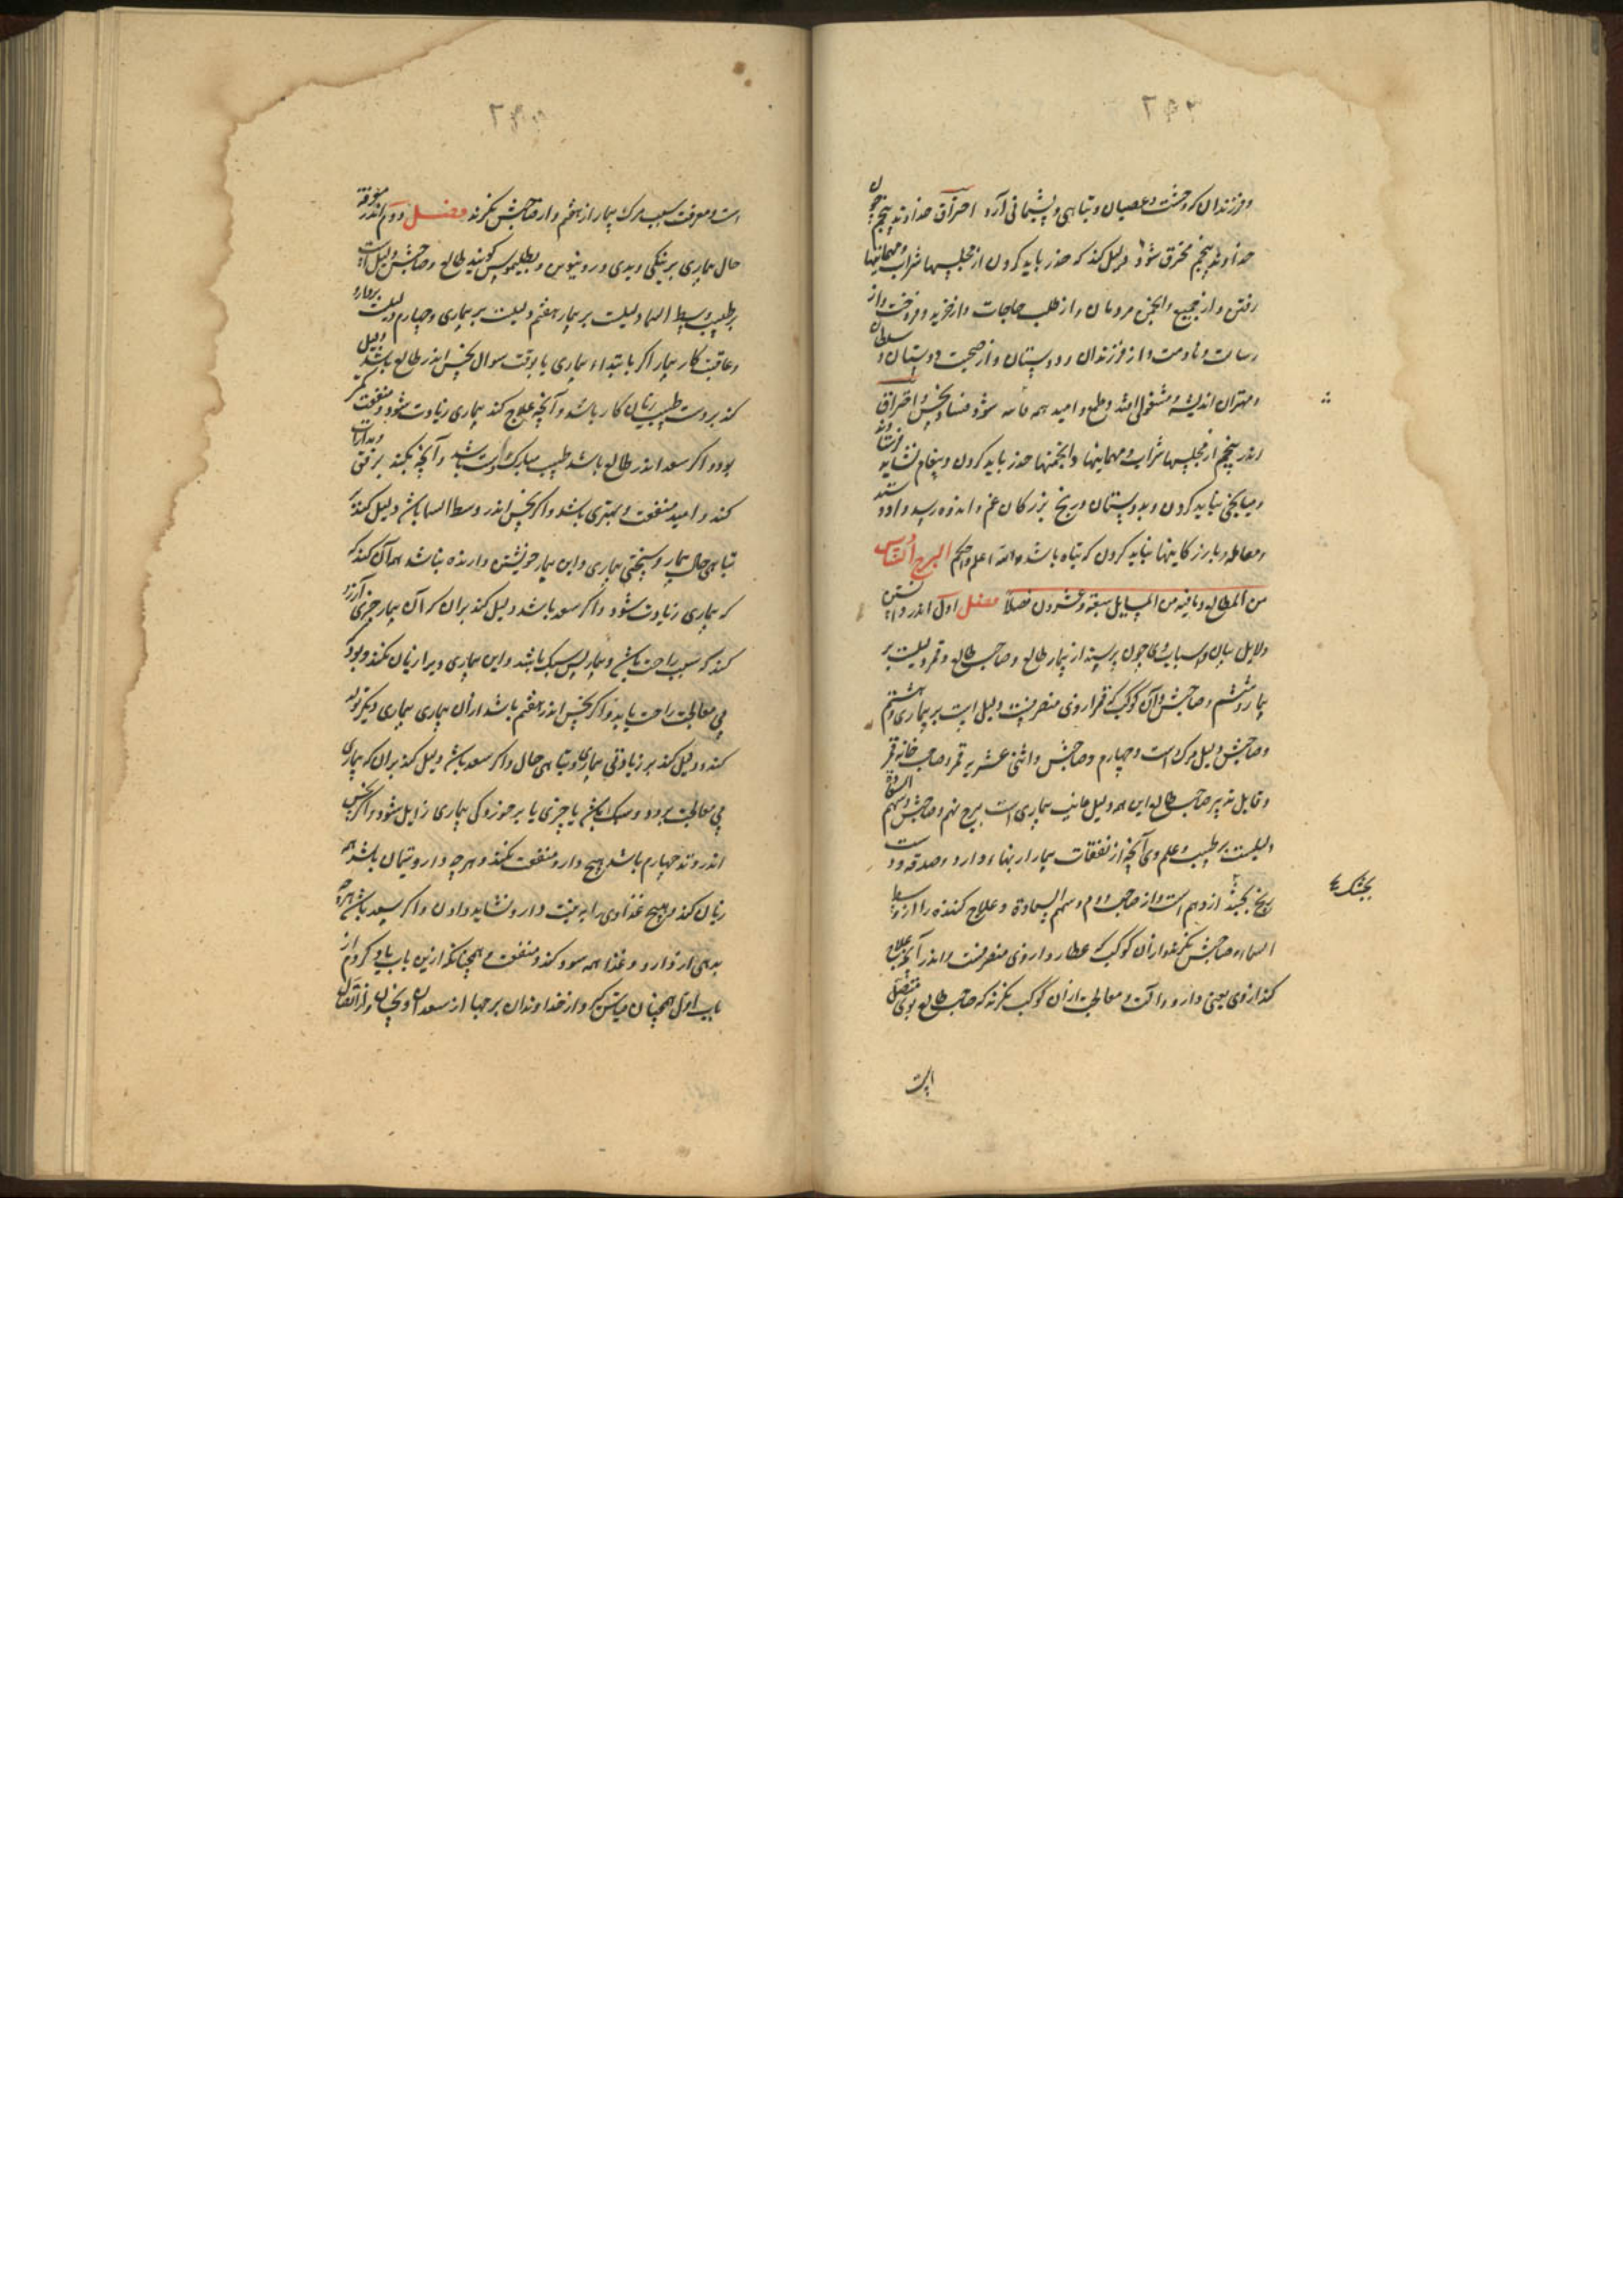 وفرزندان که وحشت وعصیان وتباهی وپشیمانی آرد احتراق خداوند پنجم چون
خداوند پنجم محترق شود دلیل کند که حذر باید کردن از مجلسها شراب ومهمانیها
رفتن واز جمیع وانجمن مردمان واز طلب حاجات واز خرید وفروخت واز
رسالت ومنادمت واز فرزندان ودوستان واز صحبت دوستان وسلطان
ومهتران اندیشه ومشغولی افتد وطمع وامید همه فاسد شود فساد نحس واحتراق
اندر پنجم از مجلسها شراب ومهمانیها وانجمنها حذر باید کردن وپیغام نشاید فرستاد
ومیانجی نباید کردن وبدوستان ورنج بزرگان غم واندوه رسد وداد وستد
ومعامله وبازرگانیها نباید کردن که تباه باشد والله اعلم واحکم البرج السادس
من المطالع ومافیه من المسایل سبعة وعشرون فصلا فصل اول اندر دانستن
دلایل بیان واسباب وی چون پرسند از بیمار طالع وصاحب طالع وقمر دلیلست بر
بیمار وششم وصاحبش وآن کوکب که قمر از وی منصرفست دلیل است بر بیماری وهشتم
وصاحبش دلیل مرک است وچهارم وصاحبش واثنی عشریه قمر وصاحب خانه قمر
وقابل تدبیر صاحب طالع این همه دلیل عاقبت بیماری است برج نهم وصاحبش وسهم السعادة
دلیلست بر طبیب وعلم وی آنچه از نفقات بیمار از بهاء دارو وصدقه ودست
رنج بجشک از دهم است واز صاحب دوم وسهم السعادة وعلاج کننده را از وسط
السماء وصاحبش نکرند وازان کوکب که عطارد از وی منصرفست واندر آنچه علاج
کند از وی یعنی دارو وآلت ومعالجت ازان کوکب نکرند که صاحب طالع بوی متصل
بجشک
است
است ومعرفت سبب مرک بیمار از هشتم واز صاحبش نکرند فصل دوم اندر معرفة
حال بیماری بر نیکی وبدی ودورنیوس وبطلیموس کویند طالع وصاحبش دلیل است
بر طبیب وسط السما دلیلست بر بیمار هفتم دلیلست بر بیماری وچهارم دلیلست بر دارو
وعاقبت کار بیمار اگر بابتداء بیماری یا بوقت سوال نحس اندر طالع باشد دلیل
کند بر دست طبیب زیان کار باشد وآنچه علاج کند بیماری زیادت شود ومنفعت کمتر
بود واکر سعد اندر طالع باشد طبیب مبارک دست باشد وآنچه بکند برفق ومدارات
کند وامید منفعت وبهتری باشد واکر نحس اندر وسط السما باشد دلیل کند بر
تباهی حال بیمار وسختی بیماری واین بیمار خویشتن دارنده نباشد همه آن کند که
که بیماری زیادت شود واکر سعد باشد دلیل کند بران که آن بیمار چیزی آرزو
کند که سبب راحت باشد وبیمار بس سبک باشد واین بیماری ویرا زیان نکند وبود که
بی معالجت راحت یابد واکر نحس اندر هفتم باشد ازان بیماری بیماری دیکر تولد
کند ودلیل کند بر زیادتی بیماری وتباهی حال واکر سعد باشد دلیل کند بران که بیماری
بی معالجت برود وسبک یا چیزی یا برخوردکی بیماری زایل شود واکر نحس
اندر وتد چهارم باشد هیچ دارو منفعت نکند وهرچه دارو تیمار باشد همه
زیان کند وهیچ غذا وی را به نیست دارو نشاید دادن واکر سعد باشد هرچه
بدهی از دارو وغذا همه سود کند ومنفعت وهمچنانکه ازین باب یاد کردم از
باب اول همچنان قیاس کن که از خداوندان برجها از سعدان ونحسان واز اتصال